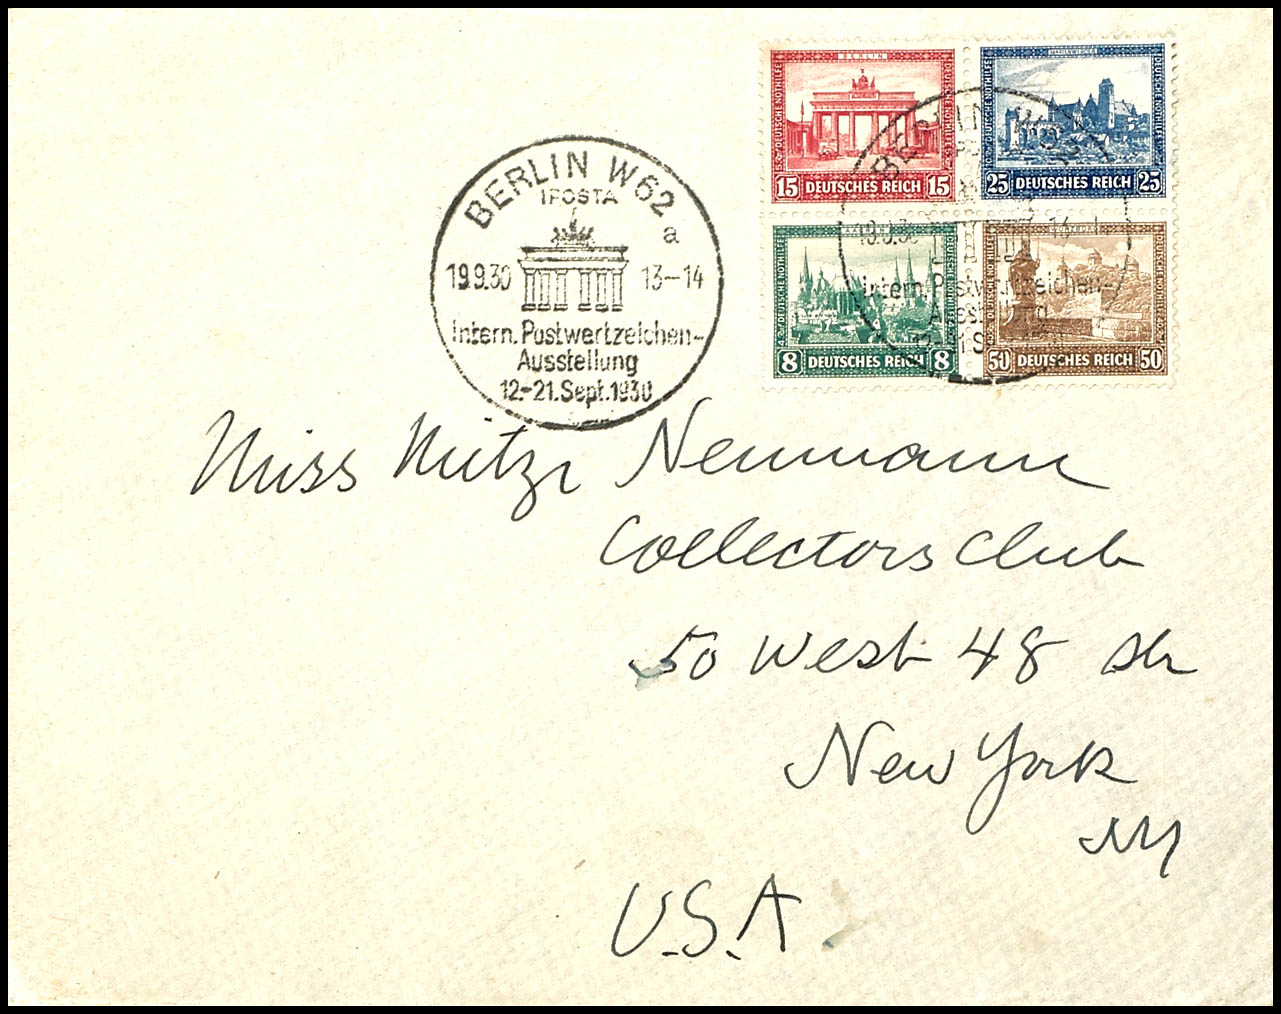 BERLIN
DEUTSCHE NOTHILFE
DEUTSCHE NOTHILFE
15 DEUTSCHES REICH 15
DEUTSCHE NOTHILFE
DEUTSCHE NOTHILFE
25 DEUTSCHES REICH 25
DEUTSCHE NOTHILFE
8 DEUTSCHES REICH 8
DEUTSCHE NOTHILFE
50 DEUTSCHES REICH 50
BERLIN W62
IPOSTA
a
19.9.30 13-14
Intern. Postwertzeichen-
Ausstellung
12.-21. Sept. 1930
BERLIN
Intern. Postwertzeichen-
Miss Mitzi Neumann
Collectors Club
50 West 48 Str
New York
NY
U.S.A.